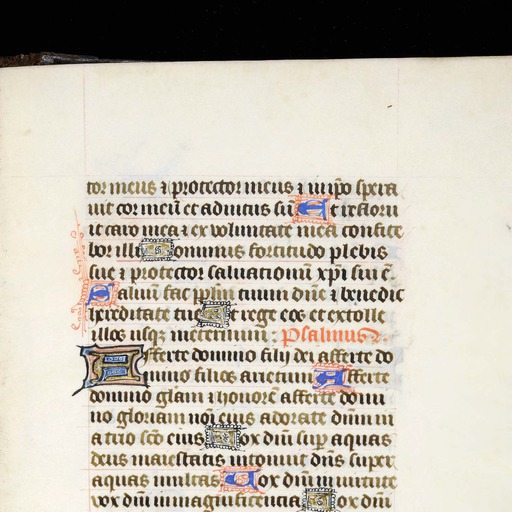 tor meus ⁊ protector meus ⁊ in ip̄o spera
uit cor meū et adiutus sū Et refloru
it caro mea ⁊ ex voluntate mea confite
bor illi Dominus fortitudo plebis
sue ⁊ protector saluationū xp̄i sui ē.
Saluū fac pp̄lm tuum dn̄e ⁊ benedic
hereditate tue Et rege eos et extolle
illos usq; in eternum: Psalmus
Afferte domino filij dei afferte do
mino filios arietum Afferte
domino glam ⁊ honorē afferte domi
no gloriam noī eius adorate dominū
atrio sc̄o eius Vox dn̄i sup aquas
deus maiestatis intonuit dn̄s super
aquas multas Vox dn̄i in uirtute
vox dn̄i in magnificencia Vox dn̄i